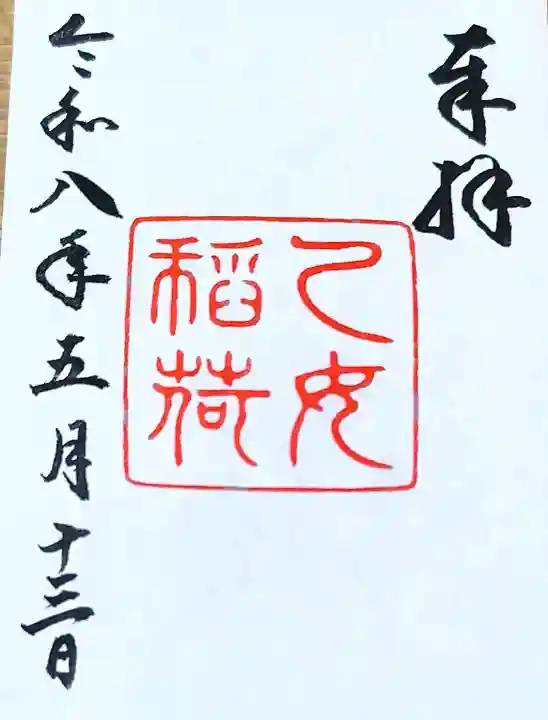 奉拝
乙女
稲荷
令和八年五月十三日